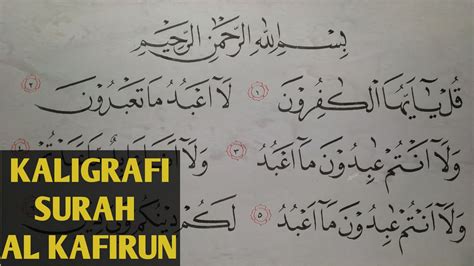 بِسْمِ اللهِ الرَّحْمٰنِ الرَّحِيْمِ
قُلْ يٰٓاَيُّهَا الْكٰفِرُوْنَ ١ لَآ اَعْبُدُ مَا تَعْبُدُوْنَ ٢
وَلَآ اَنْتُمْ عٰبِدُوْنَ مَآ اَعْبُدُ ٣ وَلَآ
وَلَآ اَنْتُمْ عٰبِدُوْنَ مَآ اَعْبُدُ ٥ لَكُمْ دِيْنُكُمْ
KALIGRAFI
SURAH
AL KAFIRUN